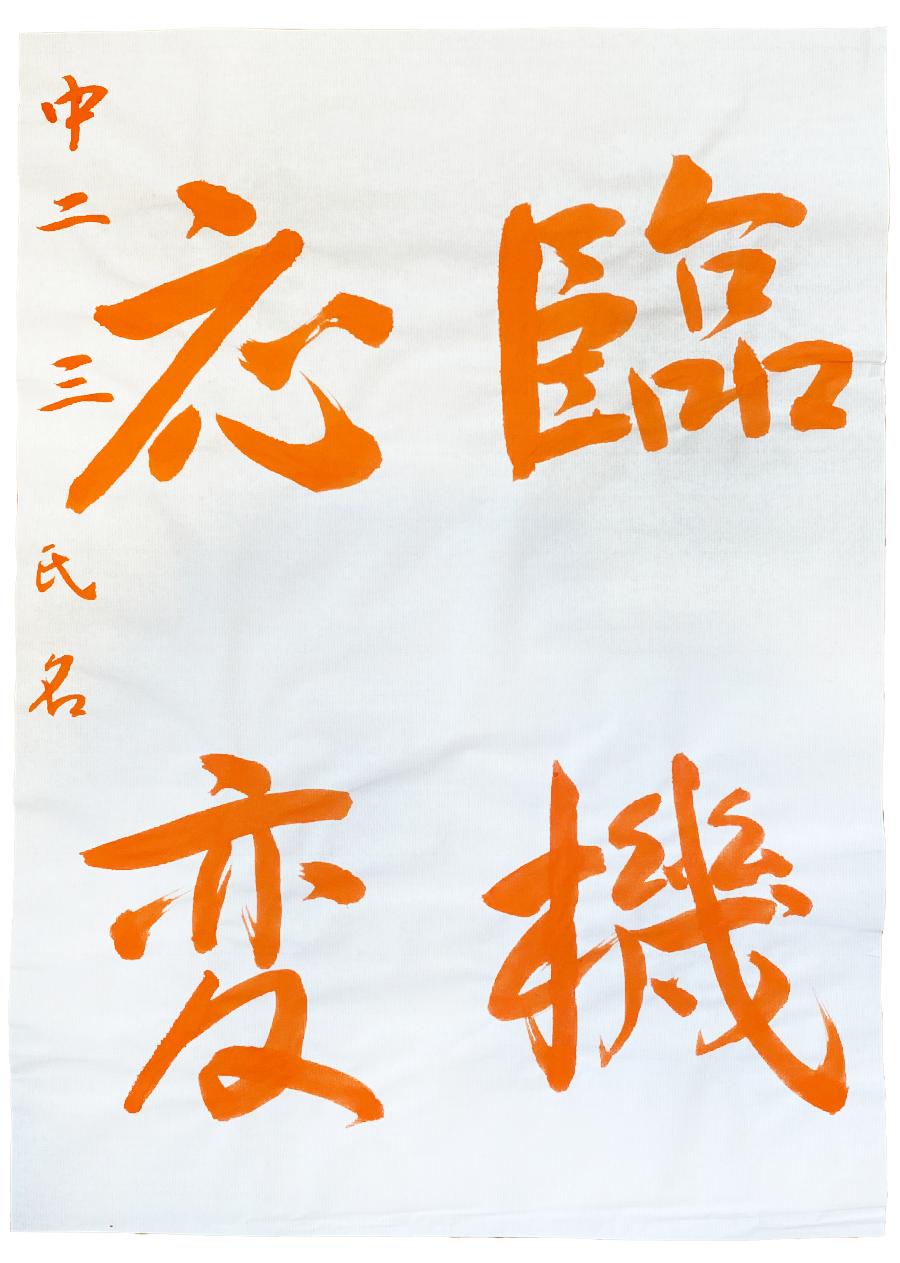 臨機
応変
中二三氏名